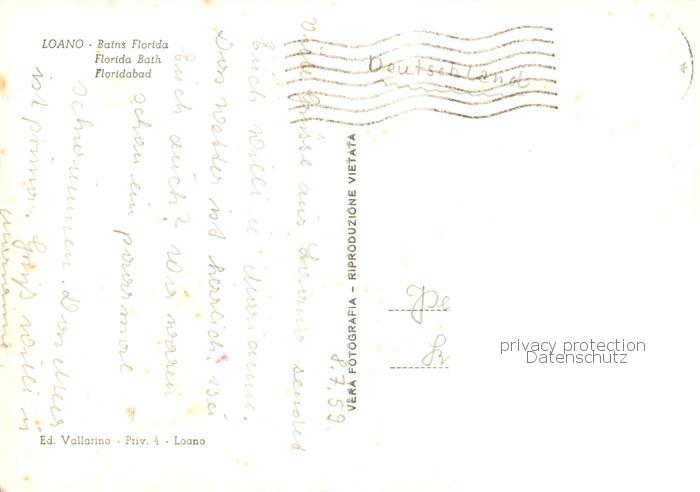 LOANO - Bains Florida
Florida Bath
Floridabad
Deutschland
8.7.59.
Viele Grüße aus Loano sendet
Euch Willi u. Marianne.
Das Wetter ist herrlich, bei
Euch auch? Wir waren
schon ein paarmal
schwimmen. Das Meer
ist prima. Gruß Willi u
Marianne.
VERA FOTOGRAFIA - RIPRODUZIONE VIETATA
privacy protection
Datenschutz
Ed. Vallarino - Priv. 4 - Loano